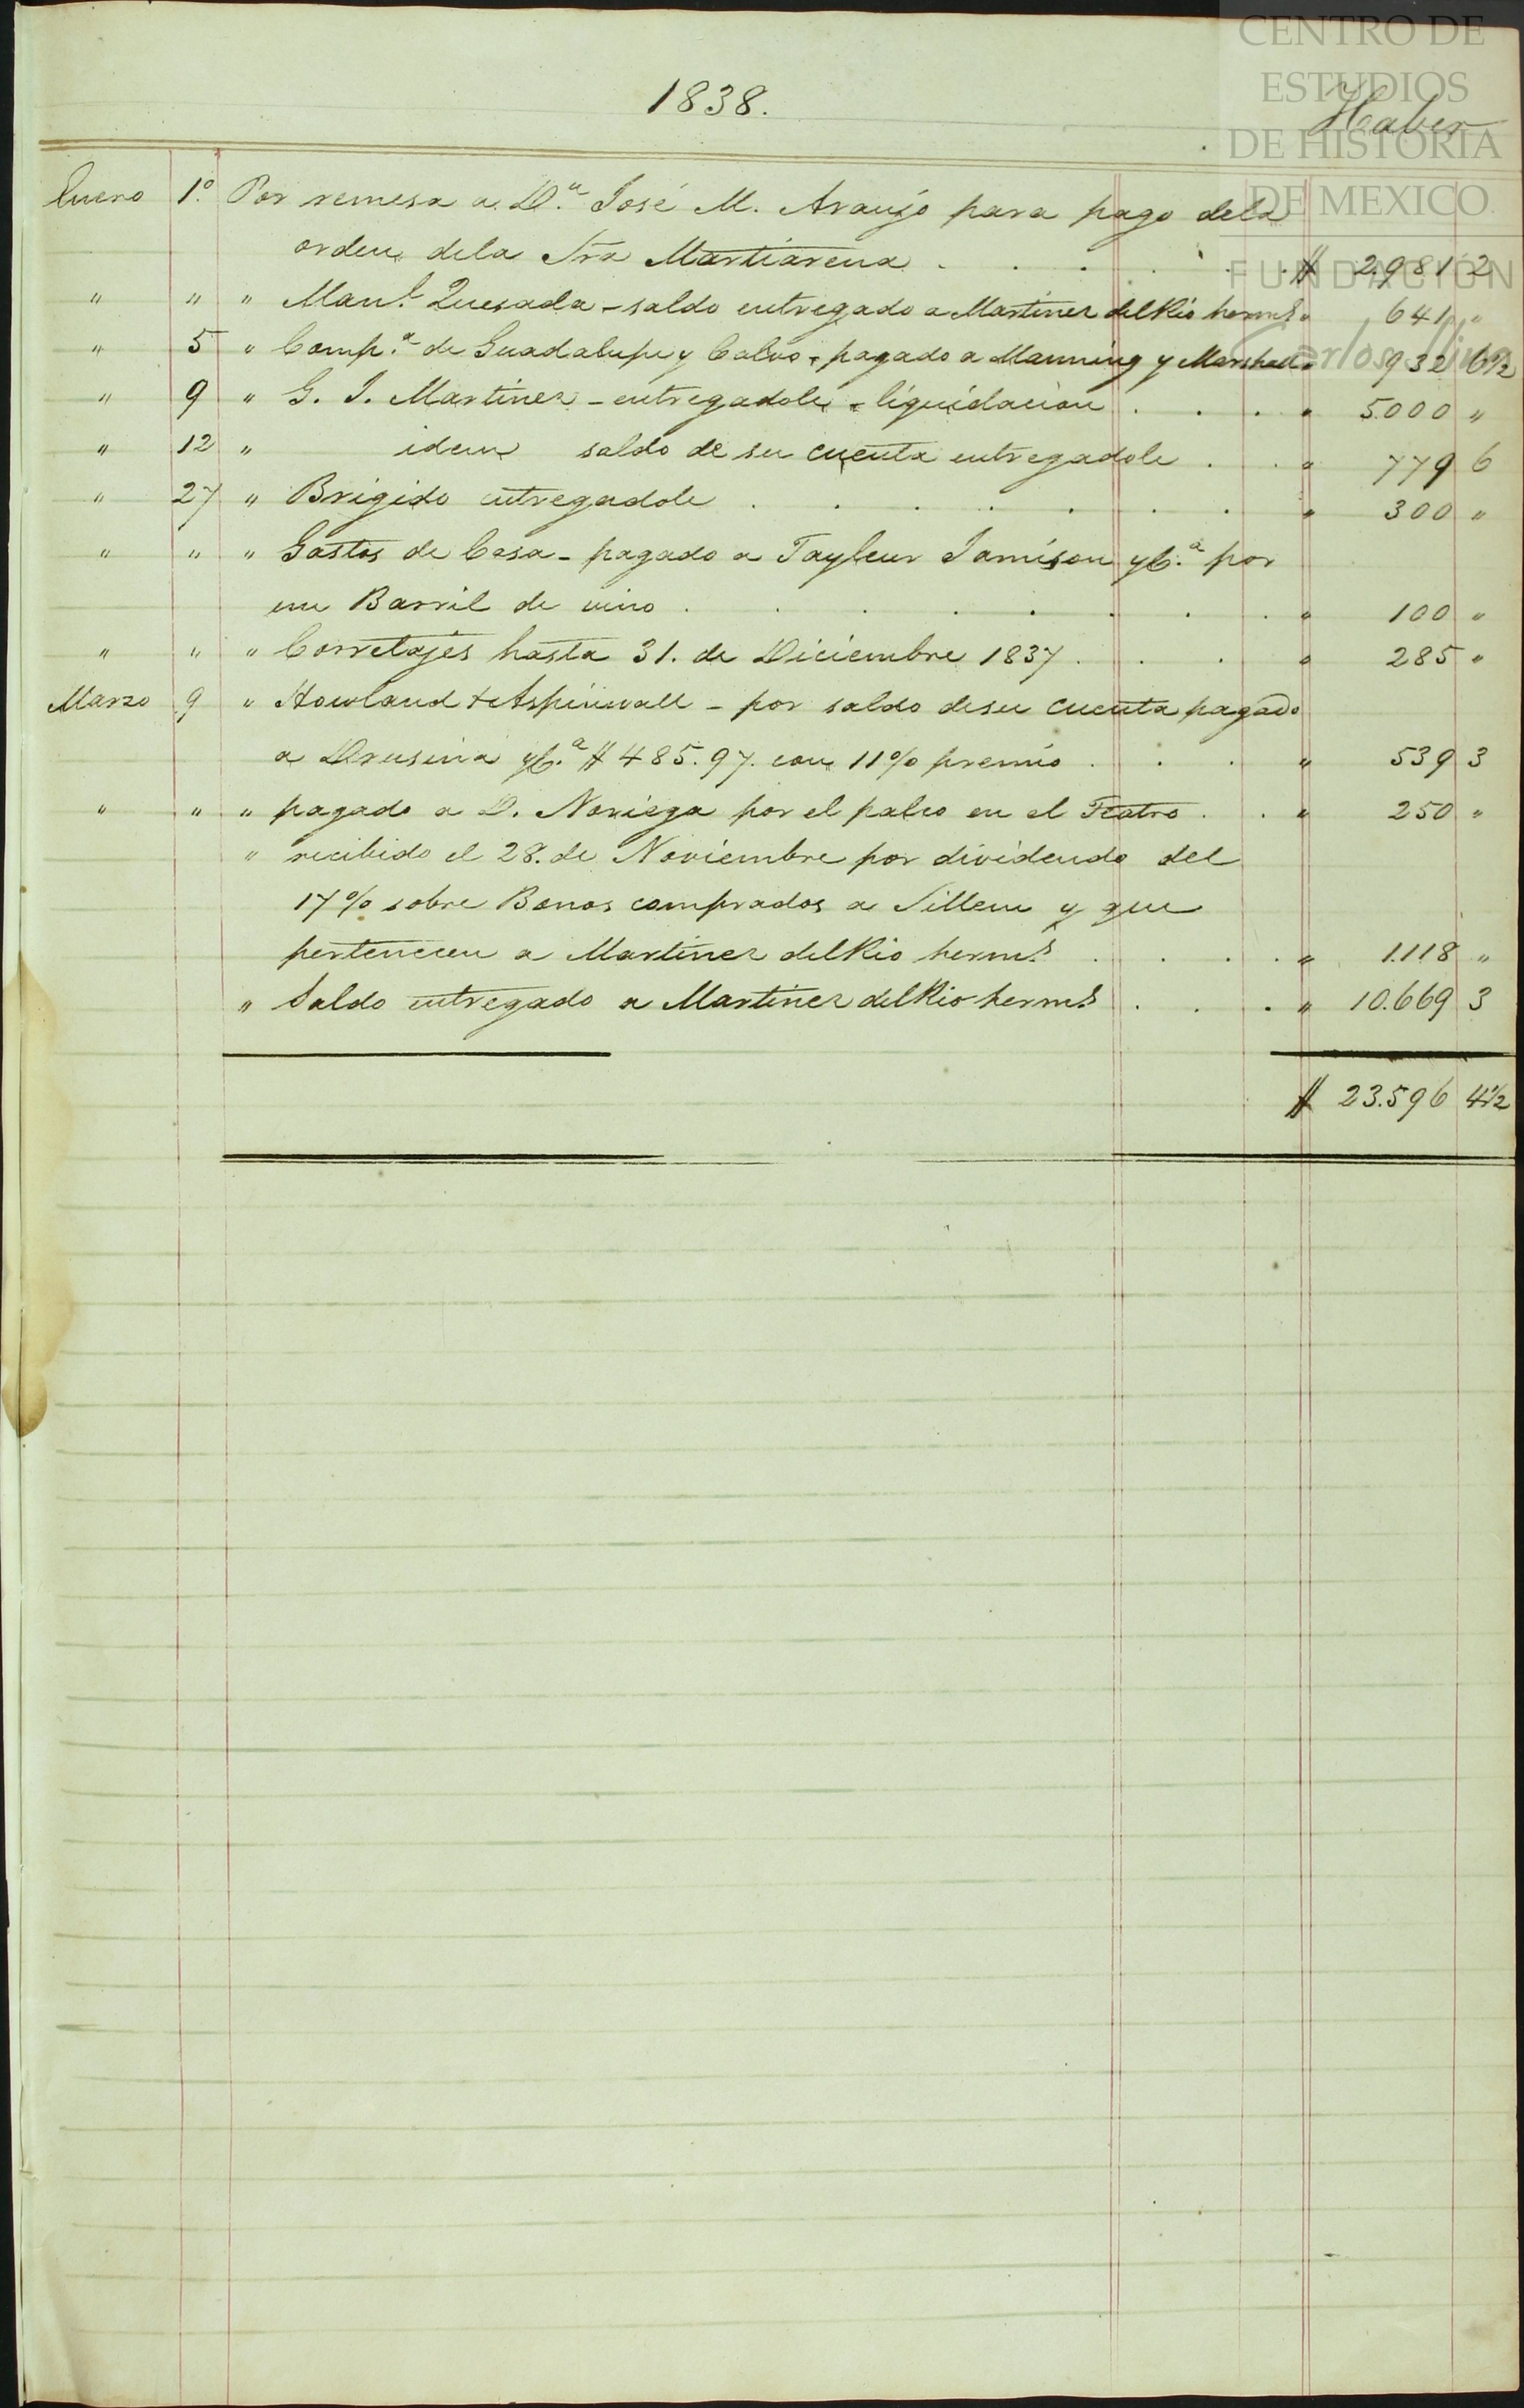 CENTRO DE
ESTUDIOS
DE HISTORIA
DE MEXICO
FUNDACIÓN
Carlos Slim
1838.
Haber
Enero 1.º Por remesa a D.n José M. Araujo para pago dela
orden dela Sra Martiarena . . . . . $ 2.981 2
" " " Man.l Quesada - saldo entregado a Martinez del Rio herm.s " 641 "
" 5 " Comp.a de Guadalupe y Calvo - pagado a Manning y Marshall " 932 6½
" 9 " G. J. Martinez - entregadole - liquidacion . . . " 5.000 "
" 12 " idem saldo de su cuenta entregadole . . " 779 6
" 27 " Brigido entregadole . . . . . . . " 300 "
" " " Gastos de Casa - pagado a Tayleur Jamison y C.a por
un Barril de vino . . . . . . . " 100 "
" " " Corretajes hasta 31. de Diciembre 1837 . . . " 285 "
Marzo 9 " Howland & Aspinwall - por saldo desu cuenta pagado
a Drusina y C.a $ 485.97. con 11% premio . . . " 539 3
" " " pagado a D. Noriega por el palco en el Teatro . . " 250 "
" recibido el 28. de Noviembre por dividendo del
17% sobre Bonos comprados a Sillem y que
pertenecen a Martinez del Rio herm.s . . . . " 1.118 "
" Saldo entregado a Martinez del Rio herm.s . . . " 10.669 3
$ 23.596 4½